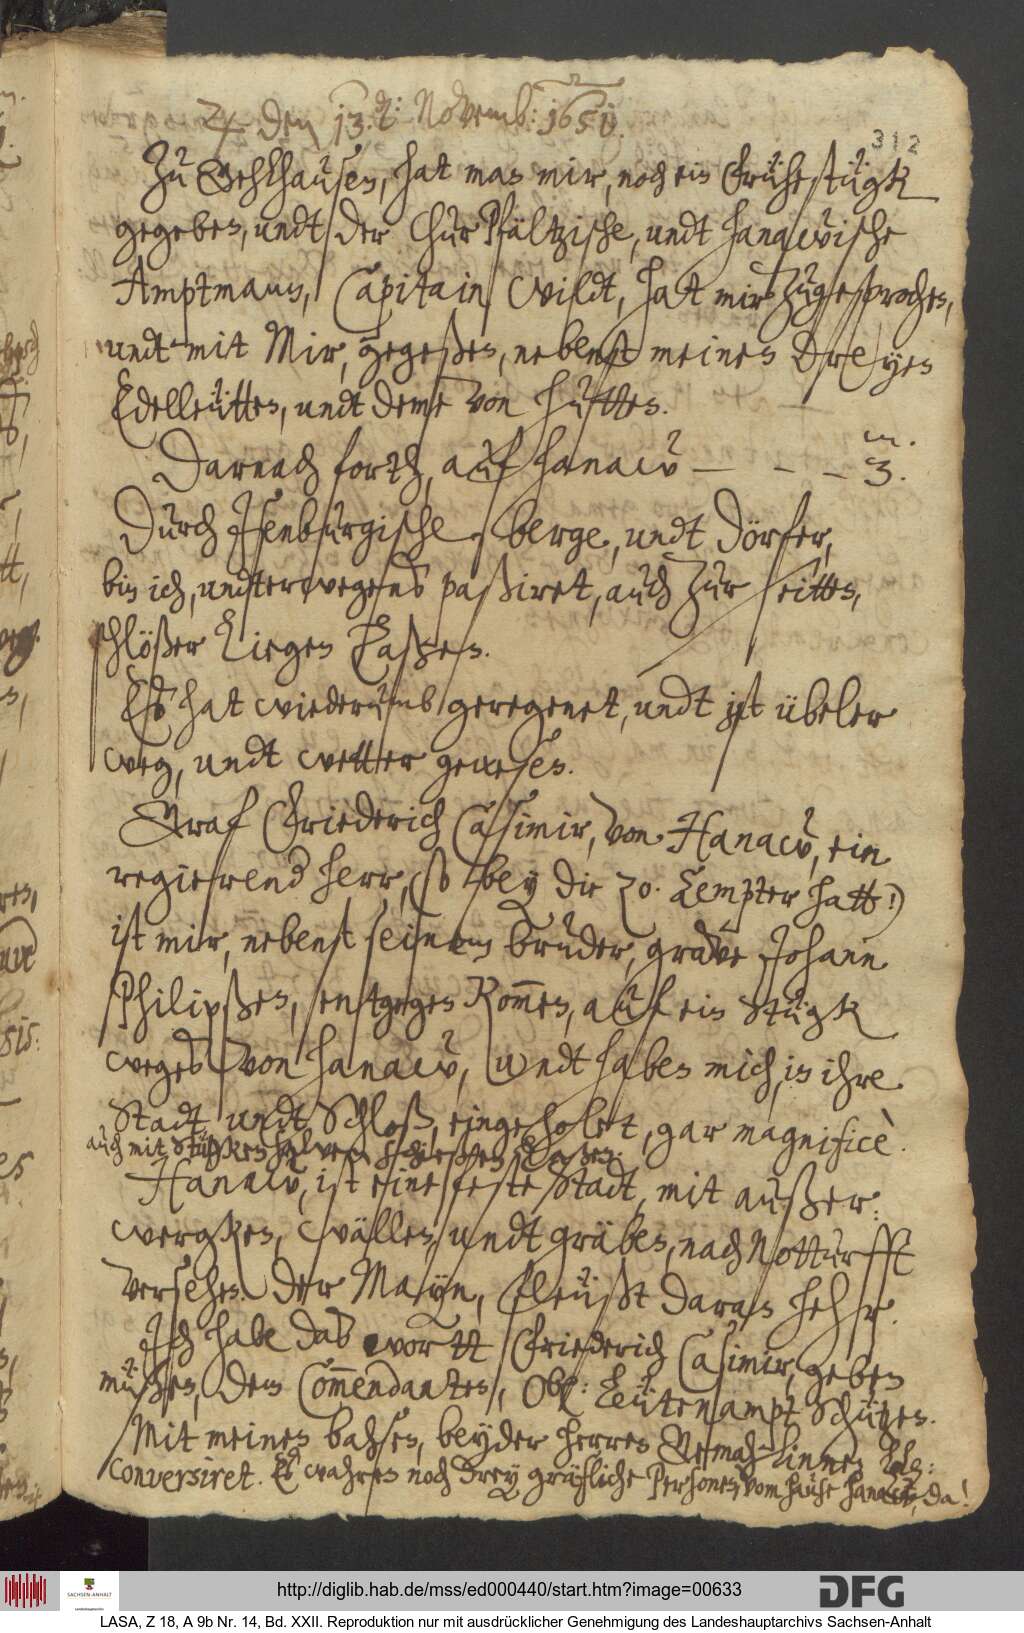 ♃ den 13. t: Novemb: 1651.
312
Zu Gehlhausen, hat man mir, noch ein Frühestügk
gegeben, undt der ChurPfältzische, undt Hanawische
Amptmann, Capitain Wildt, hat mir zugesprochen,
undt mit Mir, gegeßen, nebenst meinen Dreyen
Edelleütten, undt deme von Hutten.
m.
Darnach forth, auf Hanaw — – – – 3.
Durch Isenburgische berge, undt Dörfer,
bin ich, undterwegens paßiret, auch zur seitten,
schlößer Liegen Laßen.
Es hat wiederumb geregenet, undt ist übeler
weg, undt wetter gewesen.
Graf Friederich Casimir, von Hanaw, ein
regierend herr, (so bey die 20. Lempter hatt!)
ist mir, nebenst seinem bruder, grave Johann
Philipßen, entgegen kommen, auf ein stügk
weges von Hanaw, undt haben mich, in ihre
Stadt, undt Schloß, eingeholet, gar magnificè.
auch mit Stügken salven schießen laßen.
Hanaw, ist eine feste Stadt, mit außer:
wergken, wällen, undt gräben, nach Notturfft
versehen. Der Mayn, fleüßt daran hehr.
Ich habe das wortt Friederich Casimir, geben
müßen, dem Commendanten, Ob: Leütenampt Schützen.
Mit meinen bahsen, beyder herren Gemahlinnen
conversiret. Es wahren noch drey gräfliche Personen, vom hause Hanaw, da!
http://diglib.hab.de/mss/ed000440/start.htm?image=00633
SACHSEN-ANHALT
DFG
LASA, Z 18, A 9b Nr. 14, Bd. XXII. Reproduktion nur mit ausdrücklicher Genehmigung des Landeshauptarchivs Sachsen-Anhalt